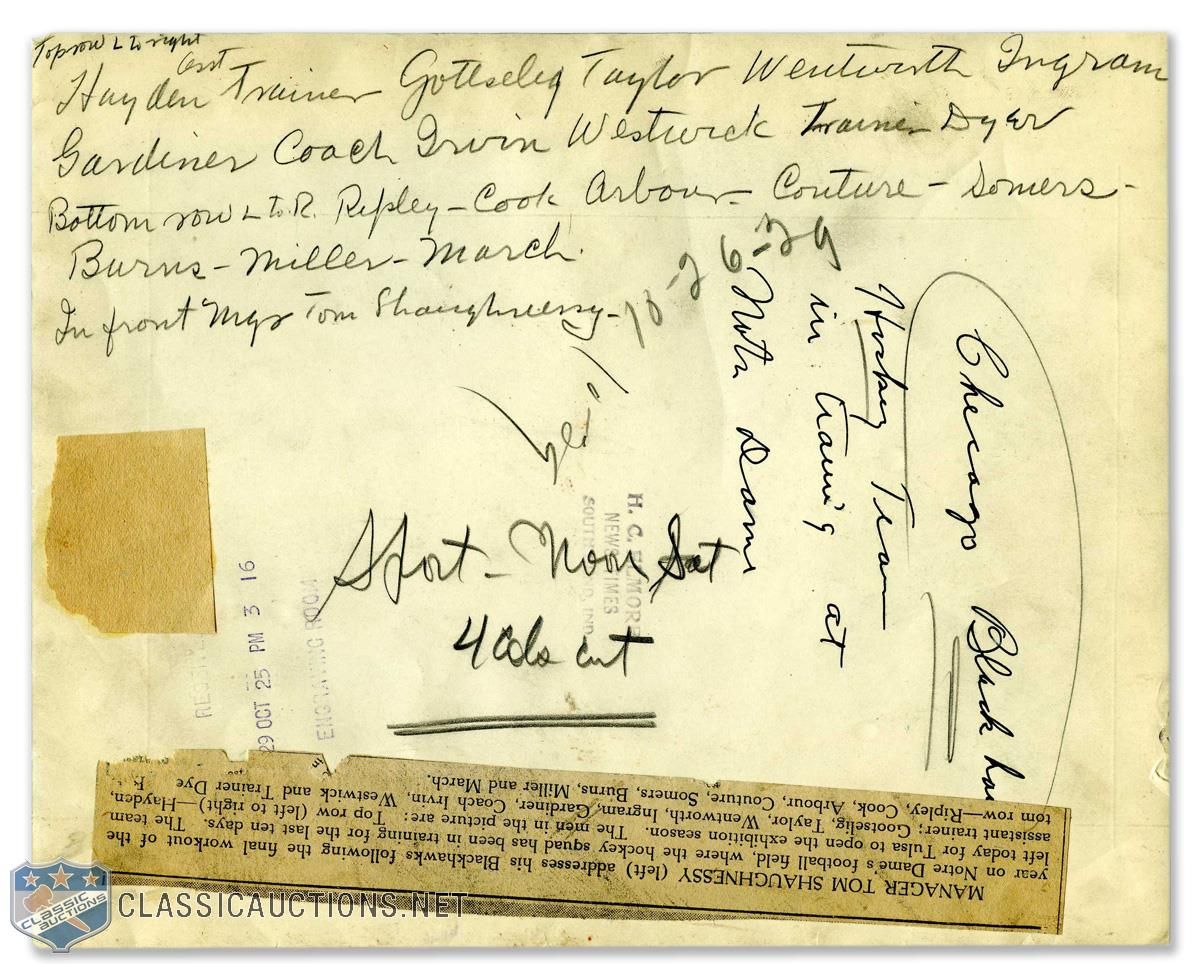 Top row L to right
Asst
Hayden Trainer Gottselig Taylor Wentworth Ingram
Gardiner Coach Irvin Westwick Trainer Dyer
Bottom row L to R. Ripley - Cook Arbour - Couture - Somers -
Burns - Miller - March.
In front Mgr Tom Shaughnessy -
10-26-29
Chicago Black haw
Hockey Team
in training at
Notr Dame
H. C. ELMORE
NEWS-TIMES
SOUTH IND.
Sport - Noon Sat
4 cols cut
29 OCT 25 PM 3 16
ENGRAVING ROOM
MANAGER TOM SHAUGHNESSY (left) addresses his Blackhawks following the final workout of the
year on Notre Dame's football field, where the hockey squad has been in training for the last ten days. The team
left today for Tulsa to open the exhibition season. The men in the picture are: Top row (left to right)—Hayden,
assistant trainer; Gootselig, Taylor, Wentworth, Ingram, Gardiner, Coach Irvin, Westwick and Trainer Dye
tom row—Ripley, Cook, Arbour, Couture, Somers, Burns, Miller and March.
CLASSIC
AUCTIONS
CLASSICAUCTIONS.NET